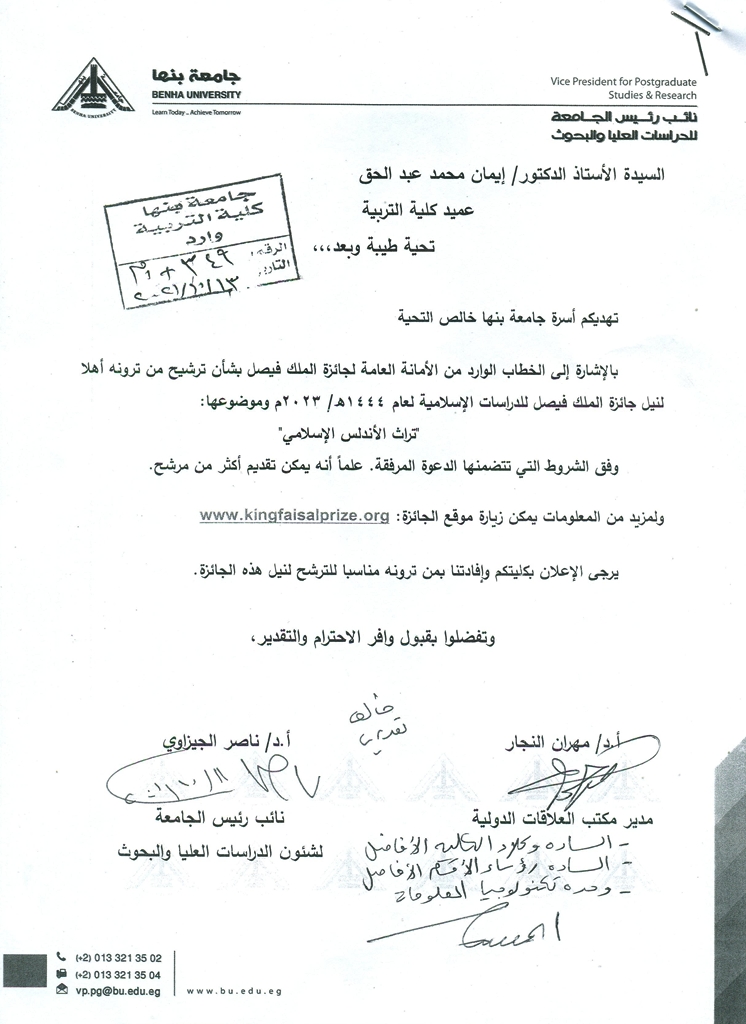 جامعة بنها
BENHA UNIVERSITY
Learn Today .. Achieve Tomorrow
BENHA UNIVERSITY
Vice President for Postgraduate
Studies & Research
نائب رئيس الجامعة
للدراسات العليا والبحوث
السيدة الأستاذ الدكتور/ إيمان محمد عبد الحق
عميد كلية التربية
تحية طيبة وبعد،،،
جامعة بنها
كلية التربية
وارد
الرقم: ٣٤٩
التاريخ:
تهديكم أسرة جامعة بنها خالص التحية
بالإشارة إلى الخطاب الوارد من الأمانة العامة لجائزة الملك فيصل بشأن ترشيح من ترونه أهلا
لنيل جائزة الملك فيصل للدراسات الإسلامية لعام ١٤٤٤هـ/ ٢٠٢٣م وموضوعها:
"تراث الأندلس الإسلامي"
وفق الشروط التي تتضمنها الدعوة المرفقة. علماً أنه يمكن تقديم أكثر من مرشح.
ولمزيد من المعلومات يمكن زيارة موقع الجائزة: www.kingfaisalprize.org
يرجى الإعلان بكليتكم وإفادتنا بمن ترونه مناسبا للترشح لنيل هذه الجائزة.
وتفضلوا بقبول وافر الاحترام والتقدير،
خالص
تقديري
أ.د/ مهران النجار
أ.د/ ناصر الجيزاوي
مدير مكتب العلاقات الدولية
نائب رئيس الجامعة
لشئون الدراسات العليا والبحوث
- الساده وكلاء الكليه الأفاضل
- الساده رؤساء الأقسام الأفاضل
- وحده تكنولوجيا المعلومات
(+2) 013 321 35 02
(+2) 013 321 35 04
vp.pg@bu.edu.eg
www.bu.edu.eg